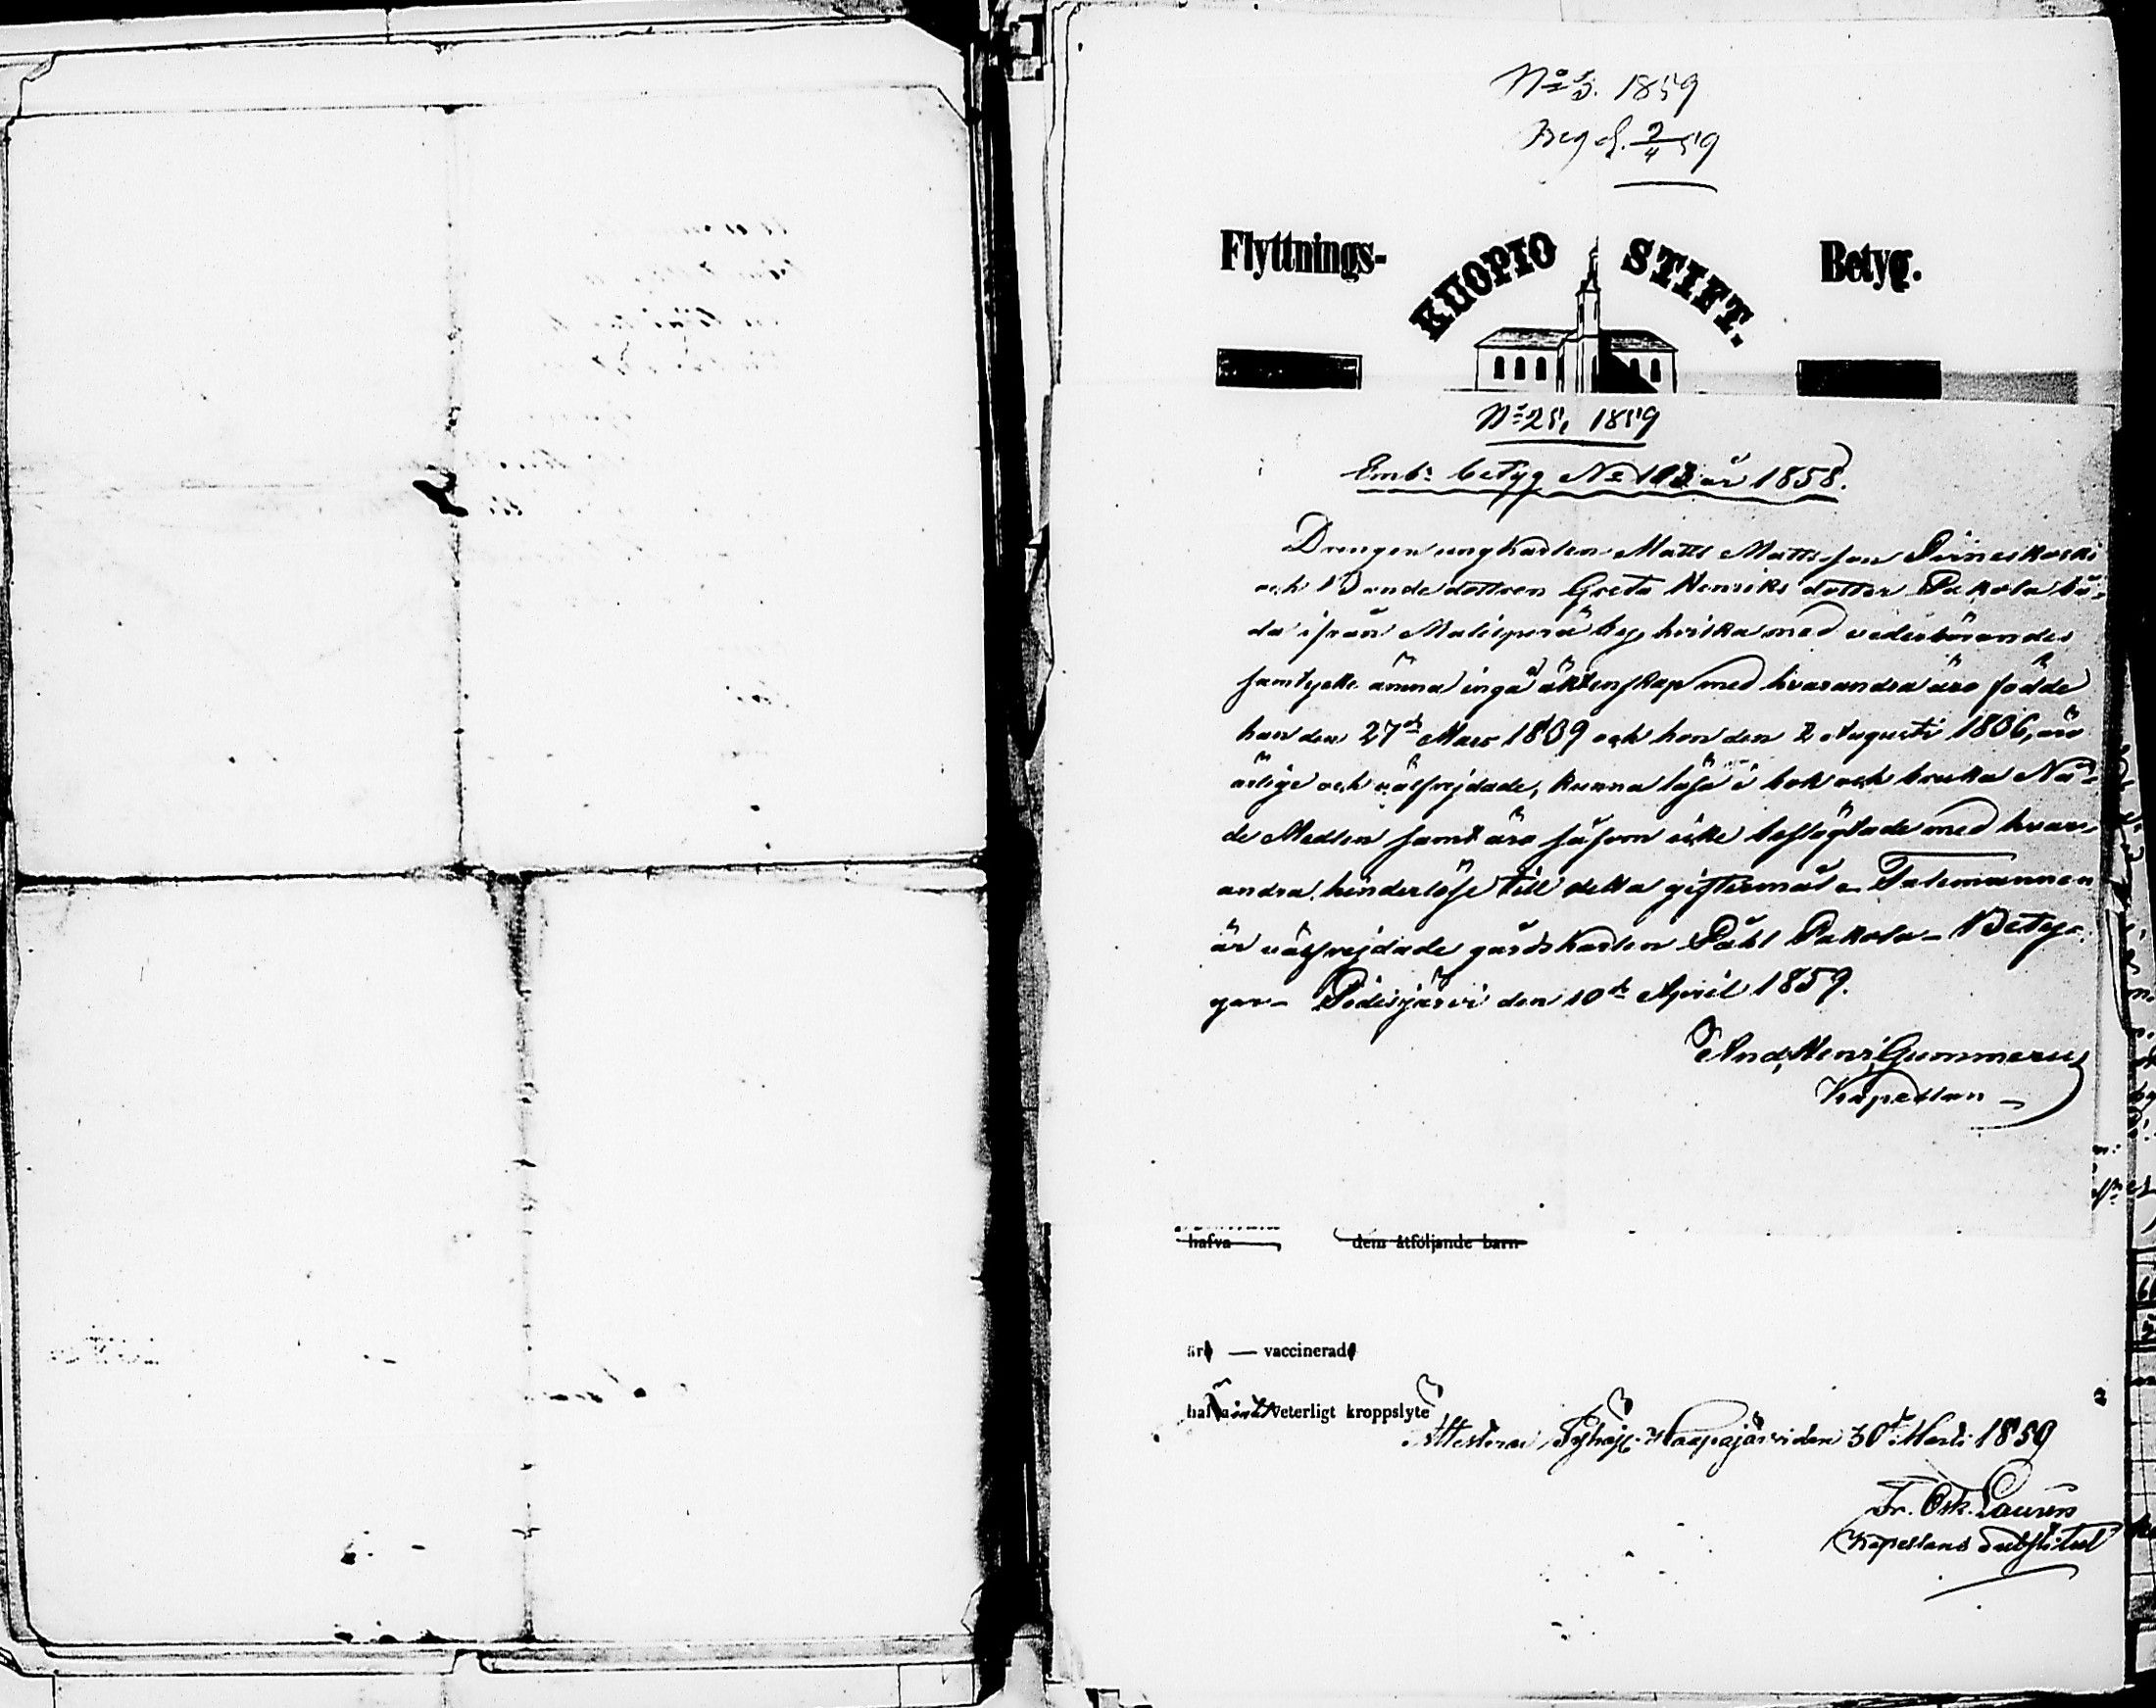 No 3. 1859
Reg d. 2/4 59
Flyttnings- KUOPIO STIFT. Betyg.
No 25, 1859
Emb: betyg No 103 år 1858.
Drengen ungkarlen Matts Mattsson Pirneskoski
och Bondedottren Greta Henriks dotter Pakola bå-
da ifrån Malisperä by, hvilka med vederbörandes
samtycke ämna ingå äktenskap med hvarandra äro födde
han den 27de Mars 1839 och hon den 2 Augusti 1836, äro
ärlige och välfrejdade, kunna läsa i bok och bruka Nå-
de Medlen samt äro såsom icke beslägtade med hvar-
andra hinderlöse till detta giftermål – Talemannen
är välfrejdade gårdskarlen Påhl Pakola – Bety-
gar – Pidisjärvi den 10de April 1859.
And, Henr, Gummerus
Kapellan
hafva dem åtföljande barn
är — vaccinerad
hafva intet veterligt kroppslyte
Attesterar Haapajärvi den 30 Marti 1859
Fr. Osk. Lauren
Kapellans Substitut